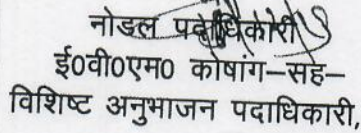 नोडल पदाधिकारी
ई0वी0एम0 कोषांग–सह–
विशिष्ट अनुभाजन पदाधिकारी,